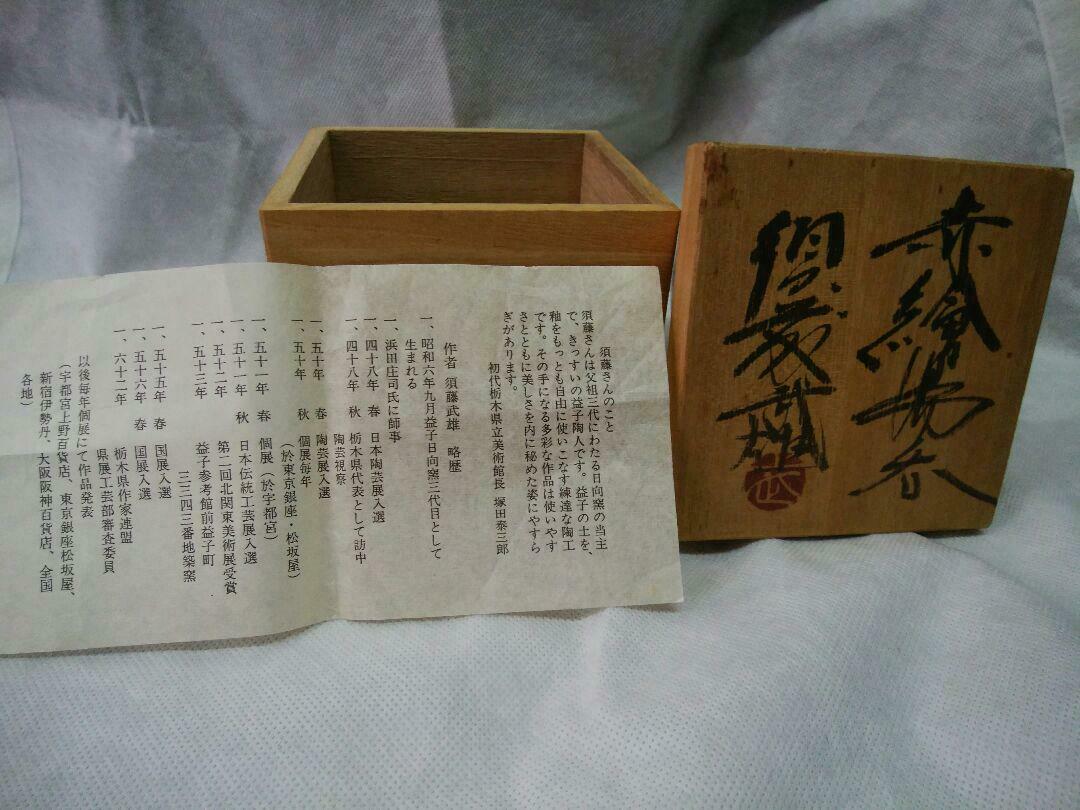 須藤さんのこと
須藤さんは父祖三代にわたる日向窯の当主
で、きっすいの益子陶人です。益子の土を、
釉をもっとも自由に使いこなす練達な陶工
です。その手になる多彩な作品は使いやす
さとともに美しさを内に秘めた姿にやすら
ぎがあります。
初代栃木県立美術館長　塚田泰三郎
作者　須藤武雄　略歴
一、昭和六年九月益子日向窯三代目として
生まれる
一、浜田庄司氏に師事
一、四十八年　春　日本陶芸展入選
一、四十八年　秋　栃木県代表として訪中
陶芸視察
一、五十年　春　陶芸展入選
一、五十年　秋　個展毎年
（於東京銀座・松坂屋）
一、五十一年　春　個展（於宇都宮）
一、五十一年　秋　日本伝統工芸展入選
一、五十二年　第二回北関東美術展受賞
一、五十三年　益子参考館前益子町
三三四三番地築窯
一、五十五年　春　国展入選
一、五十六年　春　国展入選
一、六十二年　栃木県作家連盟
県展工芸部審査委員
以後毎年個展にて作品発表
（宇都宮上野百貨店、東京銀座松坂屋、
新宿伊勢丹、大阪阪神百貨店、全国
各地）
赤繪湯呑
須藤武雄
武